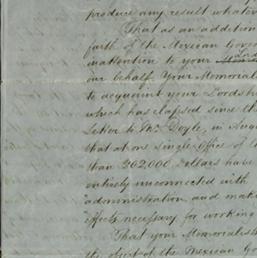 produce any result whatev
That as an addition
faith of the Mexican Gover
inattention to your
our behalf. Your Memoriali
to acquaint your Lordsh
which has elapsed since th
Letter to Mr. Doyle, in Aug
that at one single Office of
than 202,000 Dollars have
entirely unconnected with
administration, and mak
effects necessary for working
That your Memorialists
the object of the Mexican Go